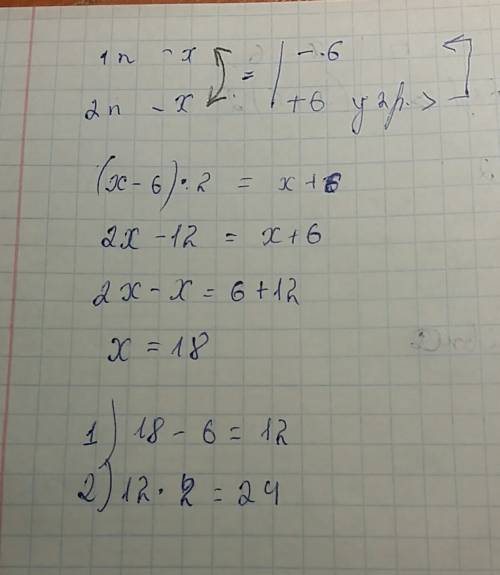 1п - x = | - 6
2п - x | + 6 у 2 р. >
(x - 6) · 2 = x + 6
2x - 12 = x + 6
2x - x = 6 + 12
x = 18
1) 18 - 6 = 12
2) 12 · 2 = 24